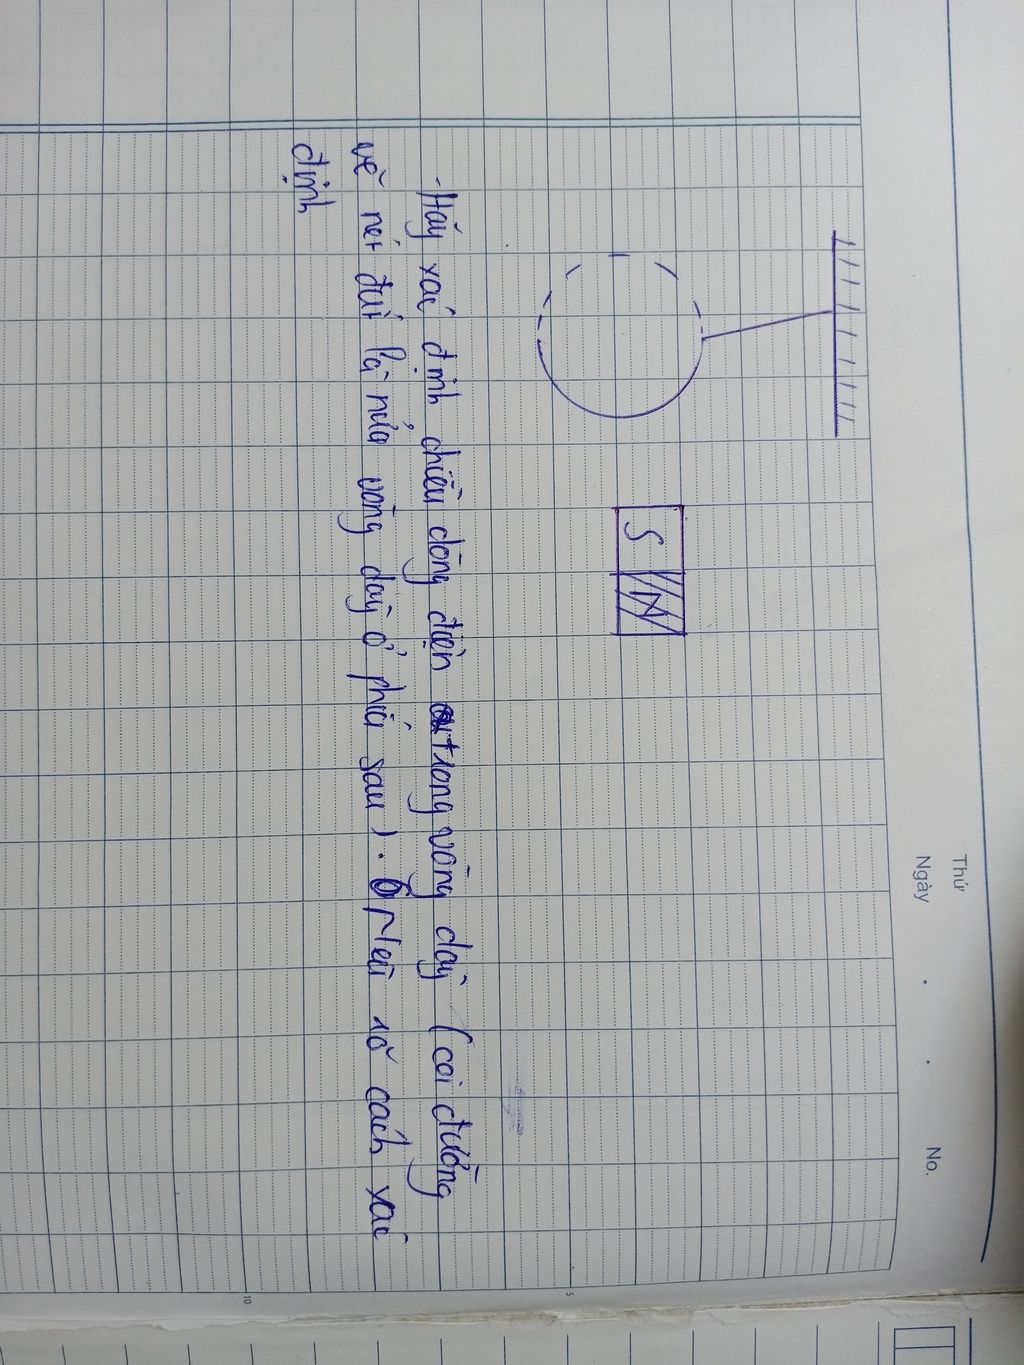 Thứ
Ngày
No.
S N
- Hãy xác định chiều dòng điện trong vòng dây (coi đường
vẽ nét đứt là nửa vòng dây ở phía sau). Nêu rõ cách xác
định
5
10